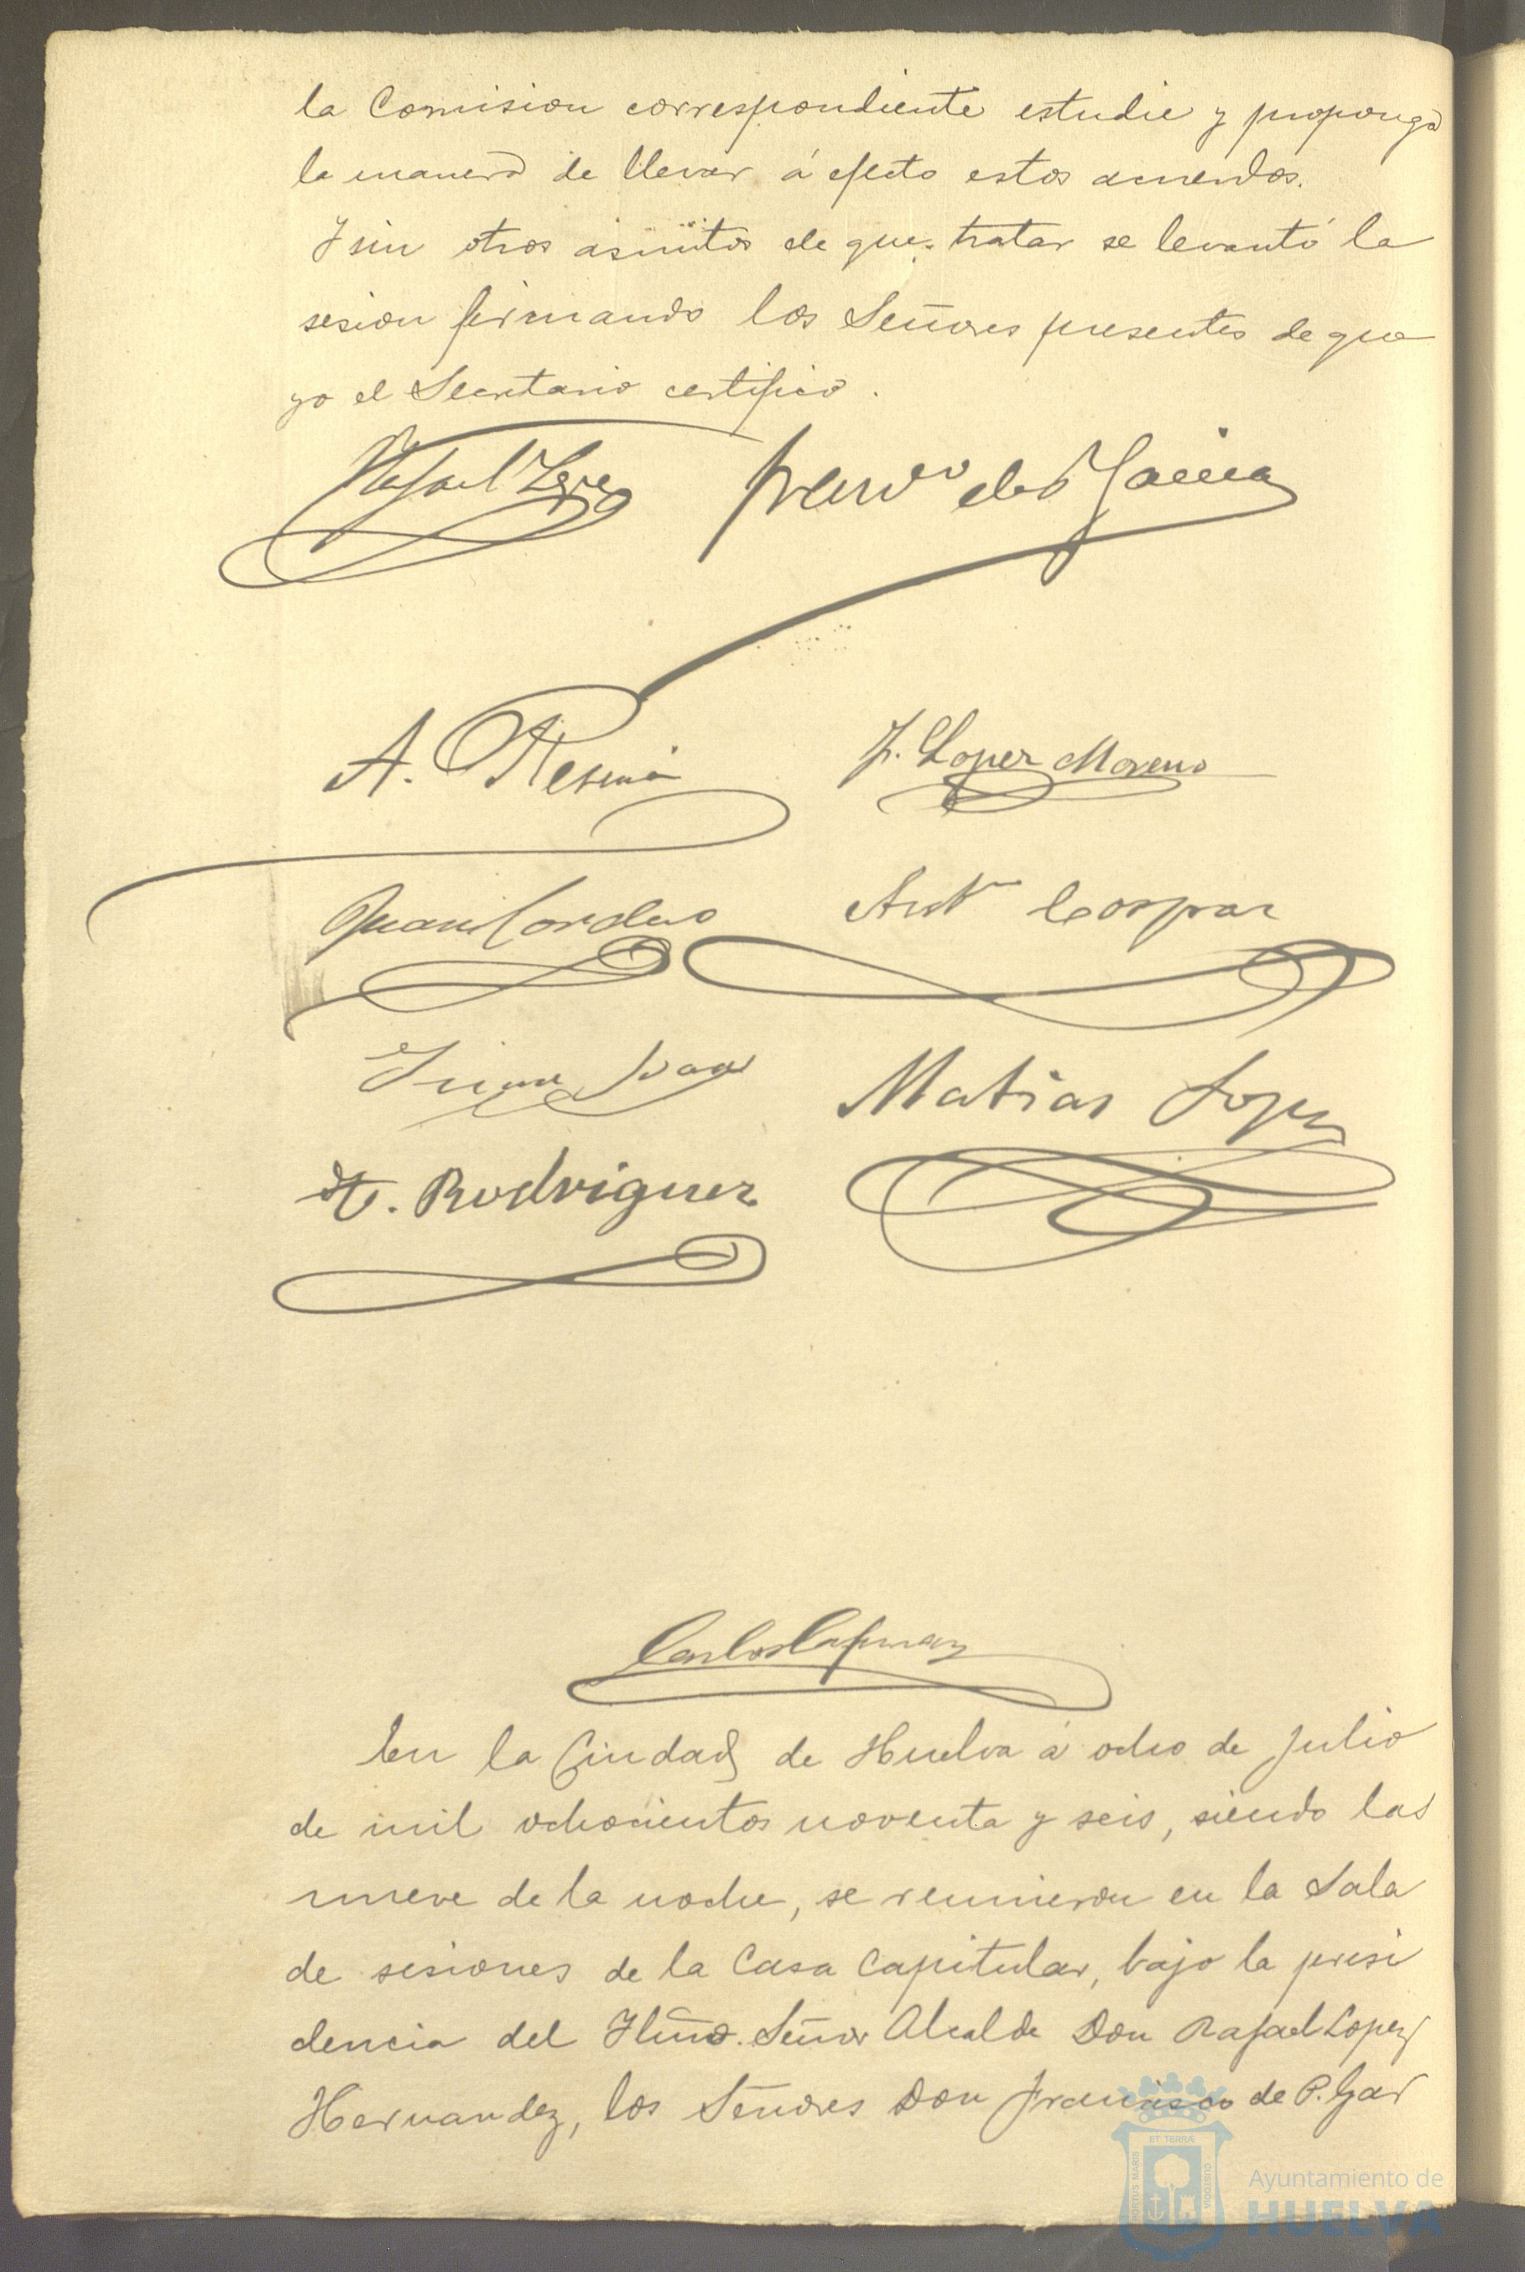 la Comision correspondiente estudie y proponga
la manera de llevar á efecto estos acuerdos.
Y sin otros asuntos de que tratar se levantó la
sesion firmando los Señores presentes de que
yo el Secretario certifico.
Rafael Lopez Franco de P Garcia
A. J. Lopez Moreno
Juan Cordero Anto Gaspar
Matias Lopez
Rodriguez
Carlos
En la Ciudad de Huelva á ocho de Julio
de mil ochocientos noventa y seis, siendo las
nueve de la noche, se reunieron en la Sala
de sesiones de la Casa Capitular, bajo la presi
dencia del Iltmo. Señor Alcalde Don Rafael Lopez
Hernandez, los Señores Don Francisco de P. Gar
PORTUS MARIS ET TERRÆ CUSTODIA
Ayuntamiento de
HUELVA